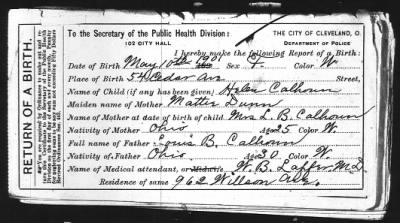 To the Secretary of the Public Health Division:
THE CITY OF CLEVELAND, O.
102 CITY HALL
DEPARTMENT OF POLICE
I hereby make the following Report of a Birth:
Date of Birth May 10th 1901 Sex F. Color W
Place of Birth 54 Cedar Ave Street,
Name of Child (if any has been given) Helen Calhoun
Maiden name of Mother Matter Dunn
Name of Mother at date of birth of child Mrs L. B. Calhoun
Nativity of Mother Ohio Aged 25 Color W.
Full name of Father Louis B. Calhoun
Nativity of Father Ohio. Aged 30 Color W.
Name of Medical attendant, or Midwife W. B. Laffer M.D
Residence of same 962 Willson Ave.
RETURN OF A BIRTH.